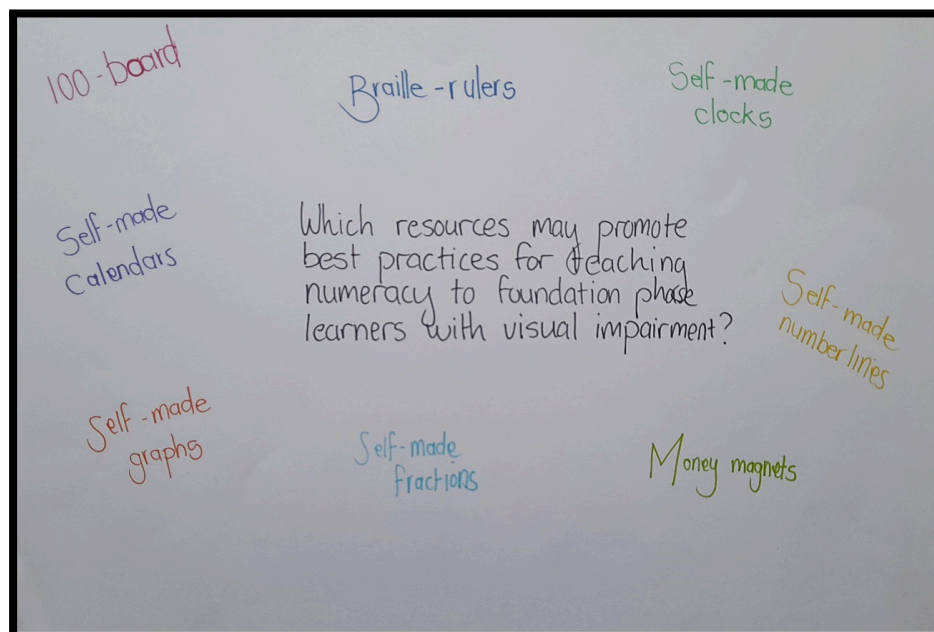 100-board
Braille-rulers
Self-made
clocks
Self-made
Calendars
Which resources may promote
best practices for teaching
numeracy to foundation phase
learners with visual impairment?
Self-made
number lines
Self-made
graphs
Self-made
fractions
Money magnets